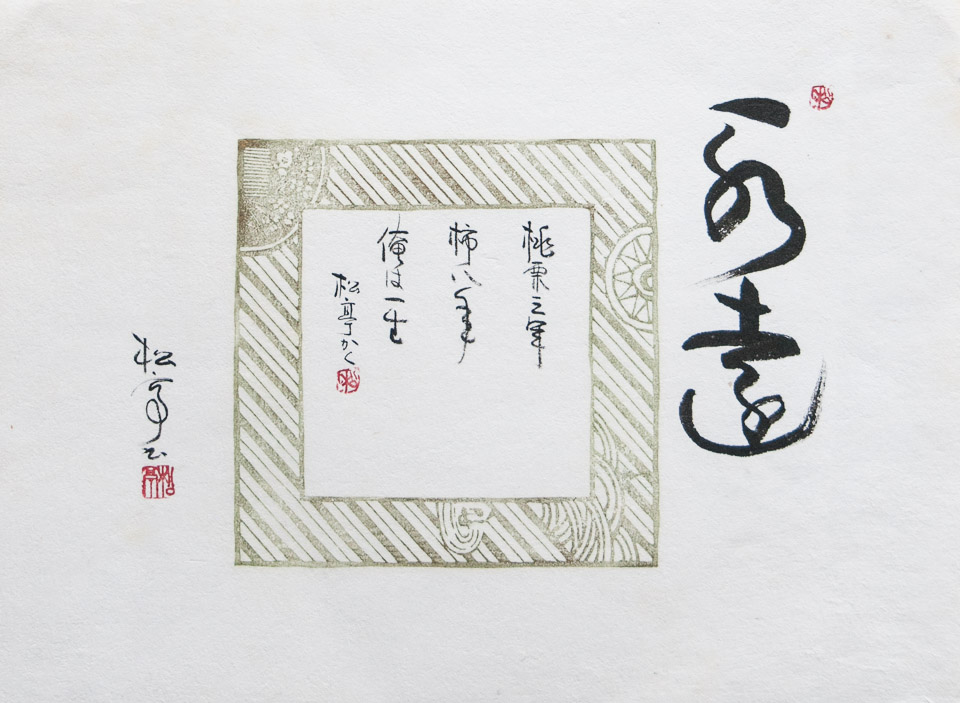 永遠
桃栗三年
柿八年
俺は一生
松亭かく
松亭
松亭